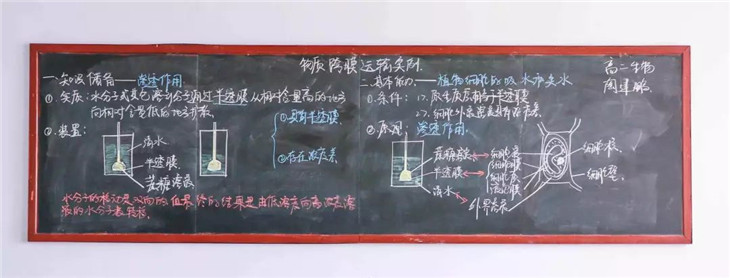 物质跨膜运输实例
高二生物
周建鹏
一.知识储备——渗透作用
①.实质:水分子或其它溶剂分子通过半透膜从相对含量高的地方
向相对含量低的地方扩散
②.装置:
清水
半透膜
蔗糖溶液
①要有半透膜
②存在浓度差
水分子的移动是双向的但最终的结果是由低浓度向高浓度溶
液的水分子数较多.
二.基本能力——植物细胞的吸水和失水
①.条件:1>.原生质层相当于半透膜
2>.细胞外溶液具有浓度差
②.原理:渗透作用
蔗糖溶液
半透膜
清水
细胞液
细胞质
液泡膜
外界溶液
细胞核
细胞壁